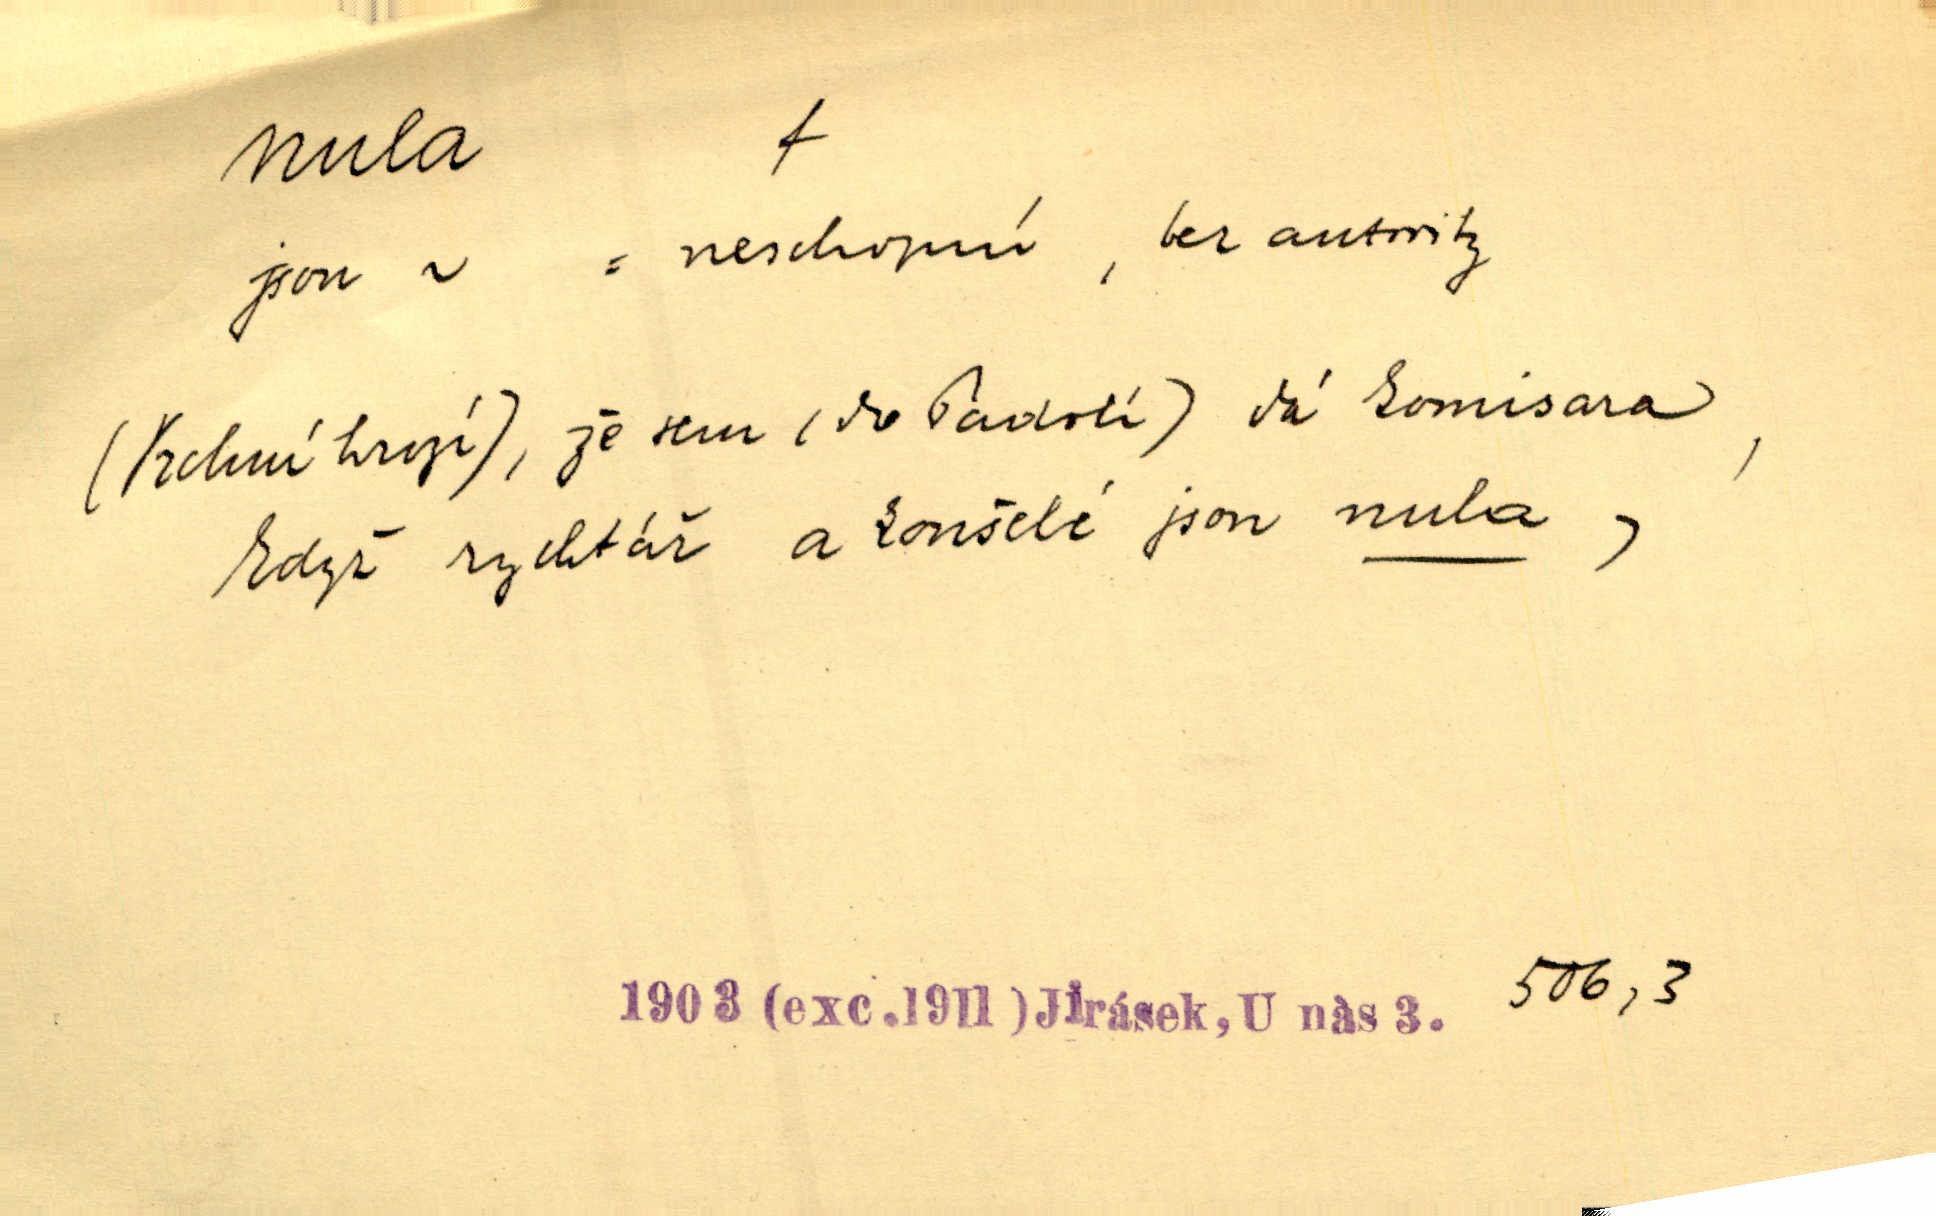 nula f
jsou ~ = neschopní, bez autority
(Vrchní hrozí), že sem (do Padolí) dá komisara,
když rychtář a konšelé jsou nula,
1903 (exc.1911) Jirásek, U nàs 3. 506,3